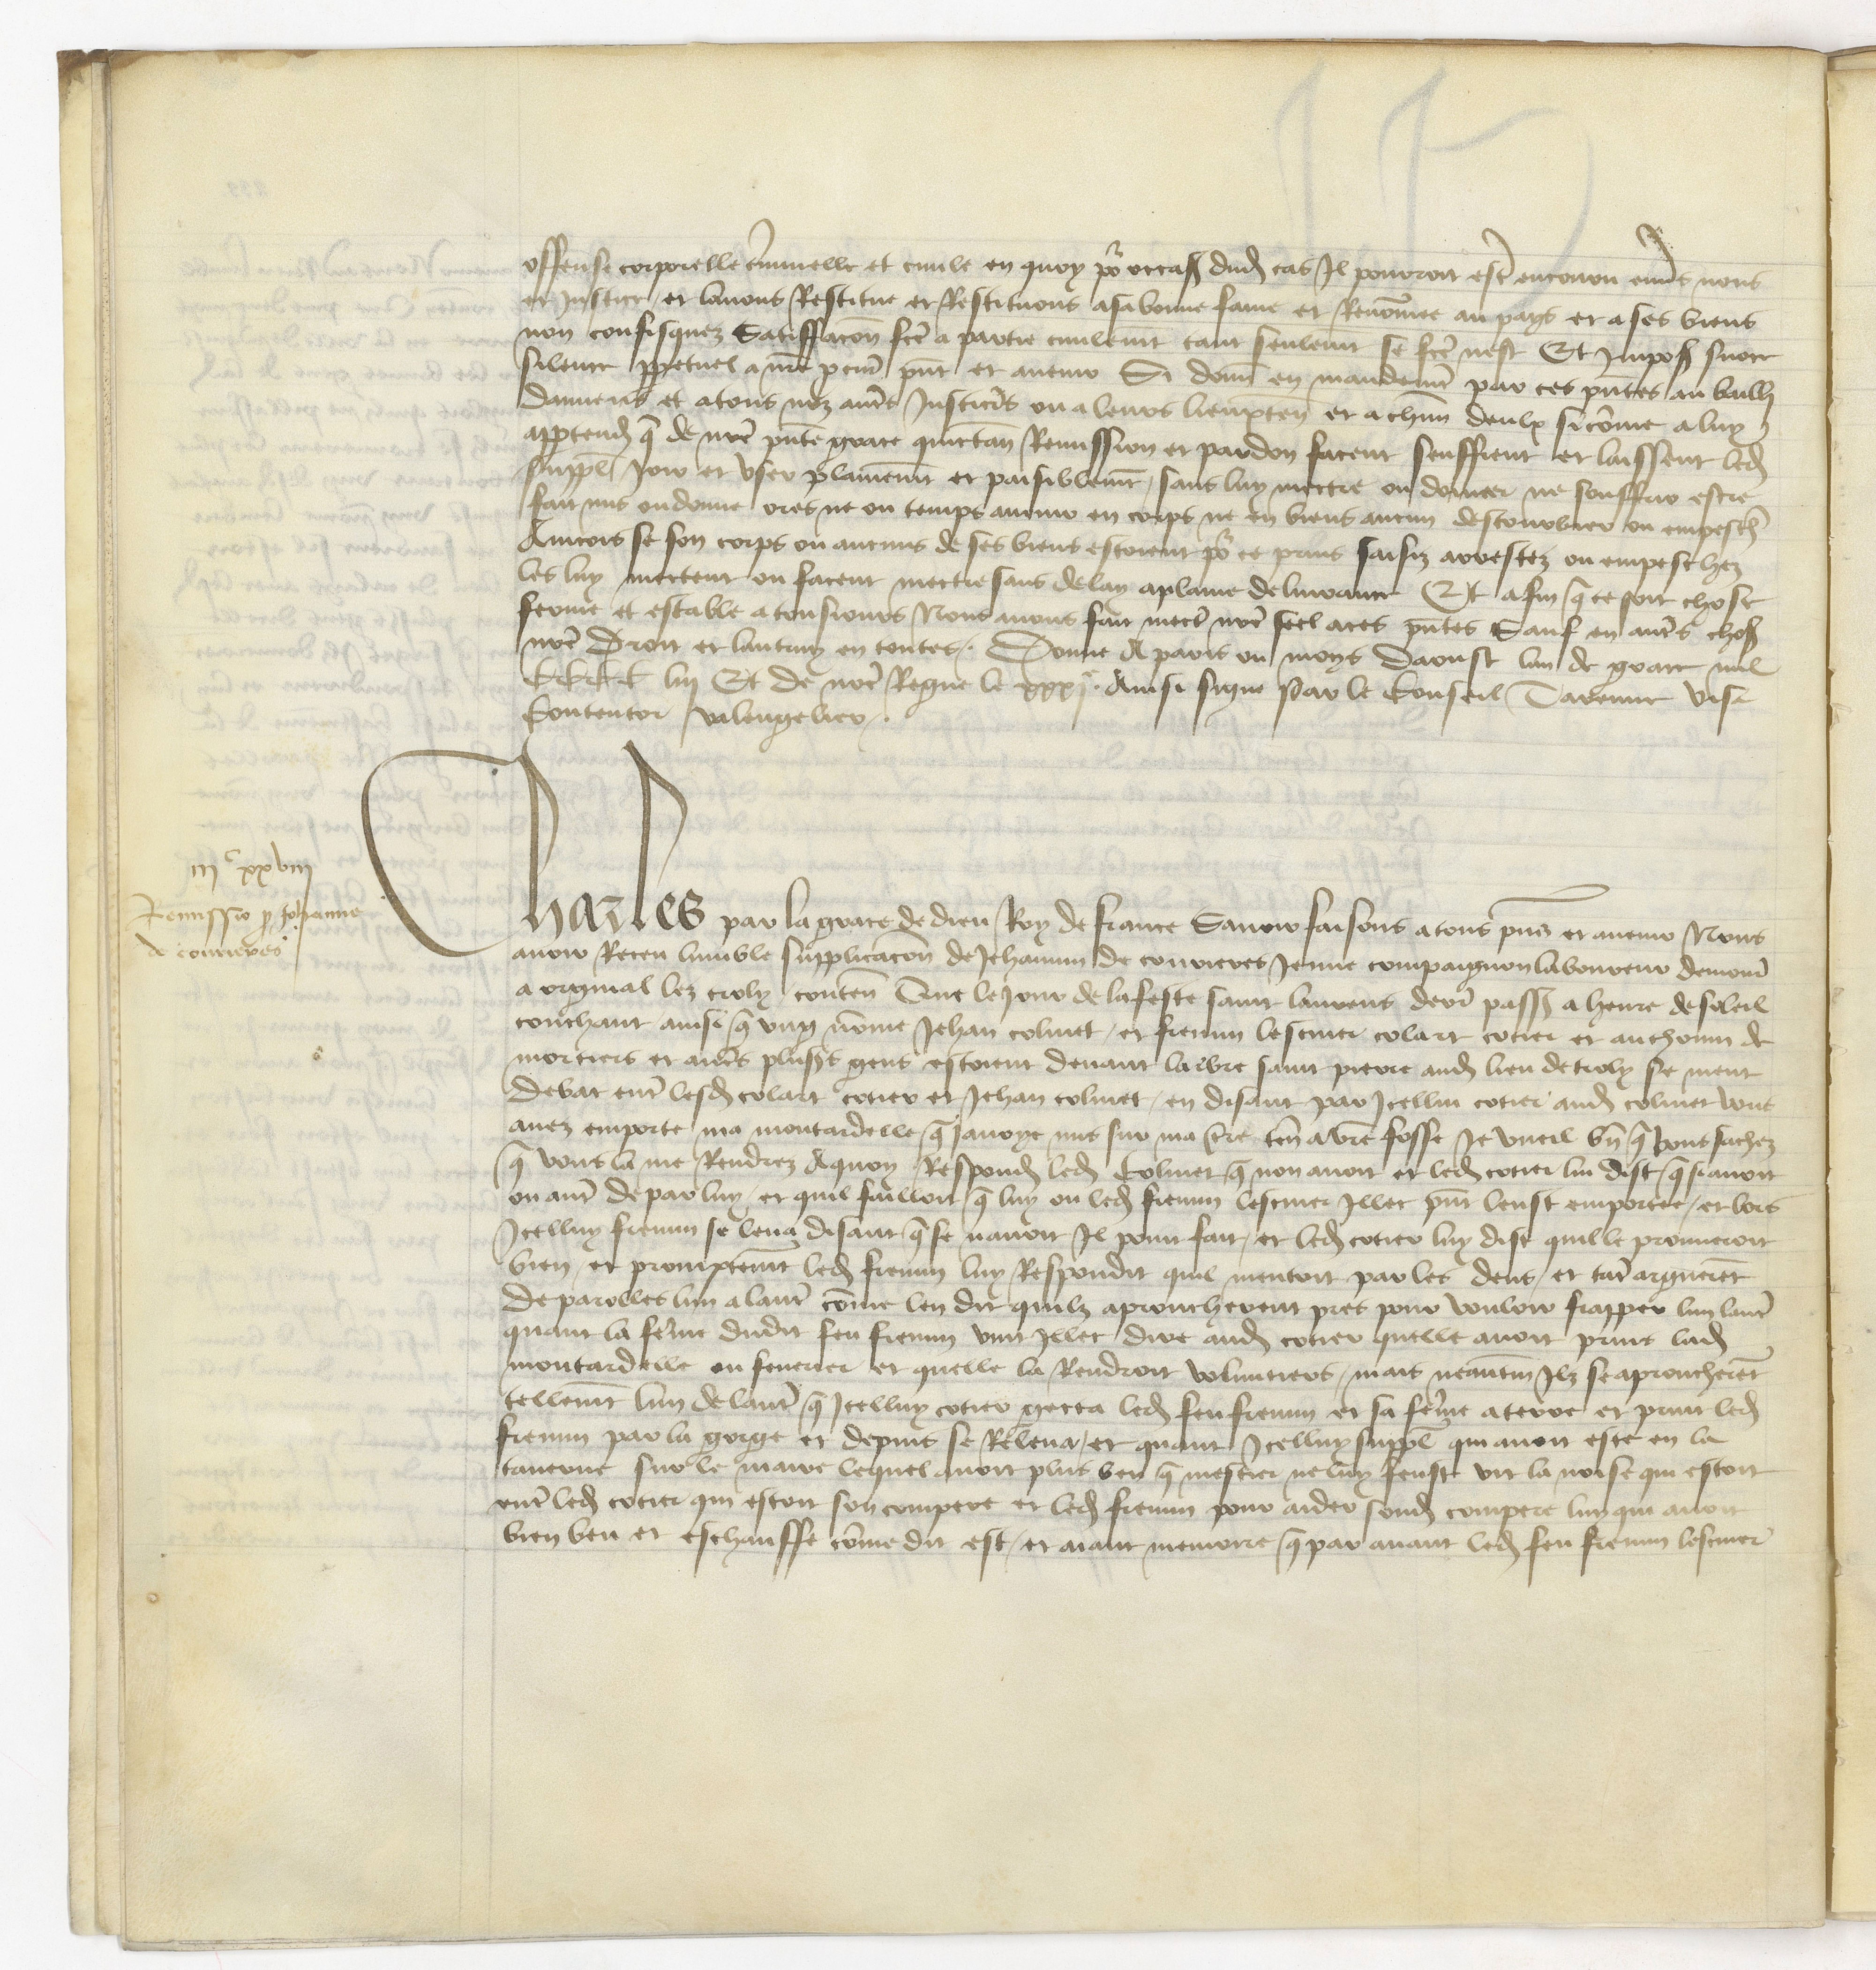 offense corporelle criminelle et civile en quoy por occasion dudit cas Il pourroit estre encouru envers nous
et Justice et lavons Restitue et Restituons a sa bonne fame et Renommee au pays et a ses biens
non confisquez Satisfaction faicte a partie civilement tant seulement se faicte nest Et Imposons sur ce
silence perpetuel a nostre procureur present et avenir Si donnons en mandement par ces presentes au bailly
damiens et a tous noz autres Justiciers ou a leurs lieuxtenans et a chacun deulx si comme a luy
appartendra que de nostre presente grace quictance Remission et pardon facent seuffrent et laissent ledit
suppliant Joir et User plainement et paisiblement sans luy mettre ou donner ne souffrir estre
fait mis ou donne ores ne ou temps avenir en corps ne en biens aucun destourbier ou empeschement
Aincois se son corps ou aucuns de ses biens estoient por ce prins saisiz arrestez ou empeschez
les luy mettent ou facent mettre sans delay a plaine delivrance Et afin que ce soit chose
ferme et estable a tousiours Nous avons fait mectre nostre seel a ces presentes Sauf en autres choses
nostre Droit et lautruy en toutes. Donne A paris ou moys Daoust lan de grace mil
CCCC liij Et de nostre Regne le xxxi.e Ainsi signe Par le Conseil Visa
Contentor Valengelier.
iij c xxviij
Remissio pro Johanne
de couvieres
Charles par la grace de dieu Roy de france Savoir faisons a tous presens et avenir Nous
avoir Receu lumble supplication de Jehannin de couvieres Jeune compaignon laboureur demourant
a lez croly contenant Que le Jour de la feste saint laurens derrenier passe a heure de soleil
couchant ainsi que ung nomme Jehan colinet et fremin lescuier colart cotier et anthonin de
mortiers et autres pluseurs gens estoient devant saint pierre audit lieu de croly se meut
debat entre lesdits colart cotier et Jehan colinet en disant par Icellui cotier audit colinet vous
avez emporte ma moutardelle que Javoye mis sur ma terre tenant a vostre fosse Je vueil bien que vous sachez
que vous la me Rendrez A quoy Respondit ledit Colinet que non avoit et ledit cotier lui dist que si avoit
ou autre de par luy et quil failloit que luy ou ledit fremin lescuier Illec present leust emportee et lors
Icelluy fremin se leva disant que se navoit Il point fait et ledit cotier luy dist quil le prouveroit
bien et promptement ledit fremin luy Respondit quil mentoit par les dens et tant arguerent
de parolles lun a lautre comme len dit quilz aproucherent pres pour vouloir frapper lun lautre
quant la femme dudit feu fremin vint Illec dire audit cotier quelle avoit prins ladite
moutardelle ou fenerier et quelle la Rendroit voluntiers mais neantmoins Ilz se aproucherent
tellement lun de lautre que Icelluy cotier gecta ledit feu fremin et sa femme a terre et print ledit
fremin par la gorge et depuis se Releva et quant Icelluy suppliant qui avoit este en la
taverne sur le maire lequel avoit plus beu que mestier ne luy feust vit la noise qui estoit
entre ledit cotier qui estoit son compere et ledit fremin pour aider sondit compere luy qui avoit
bien beu et eschauffe comme dit est et aiant memoire que par avant ledit feu fremin lescuier